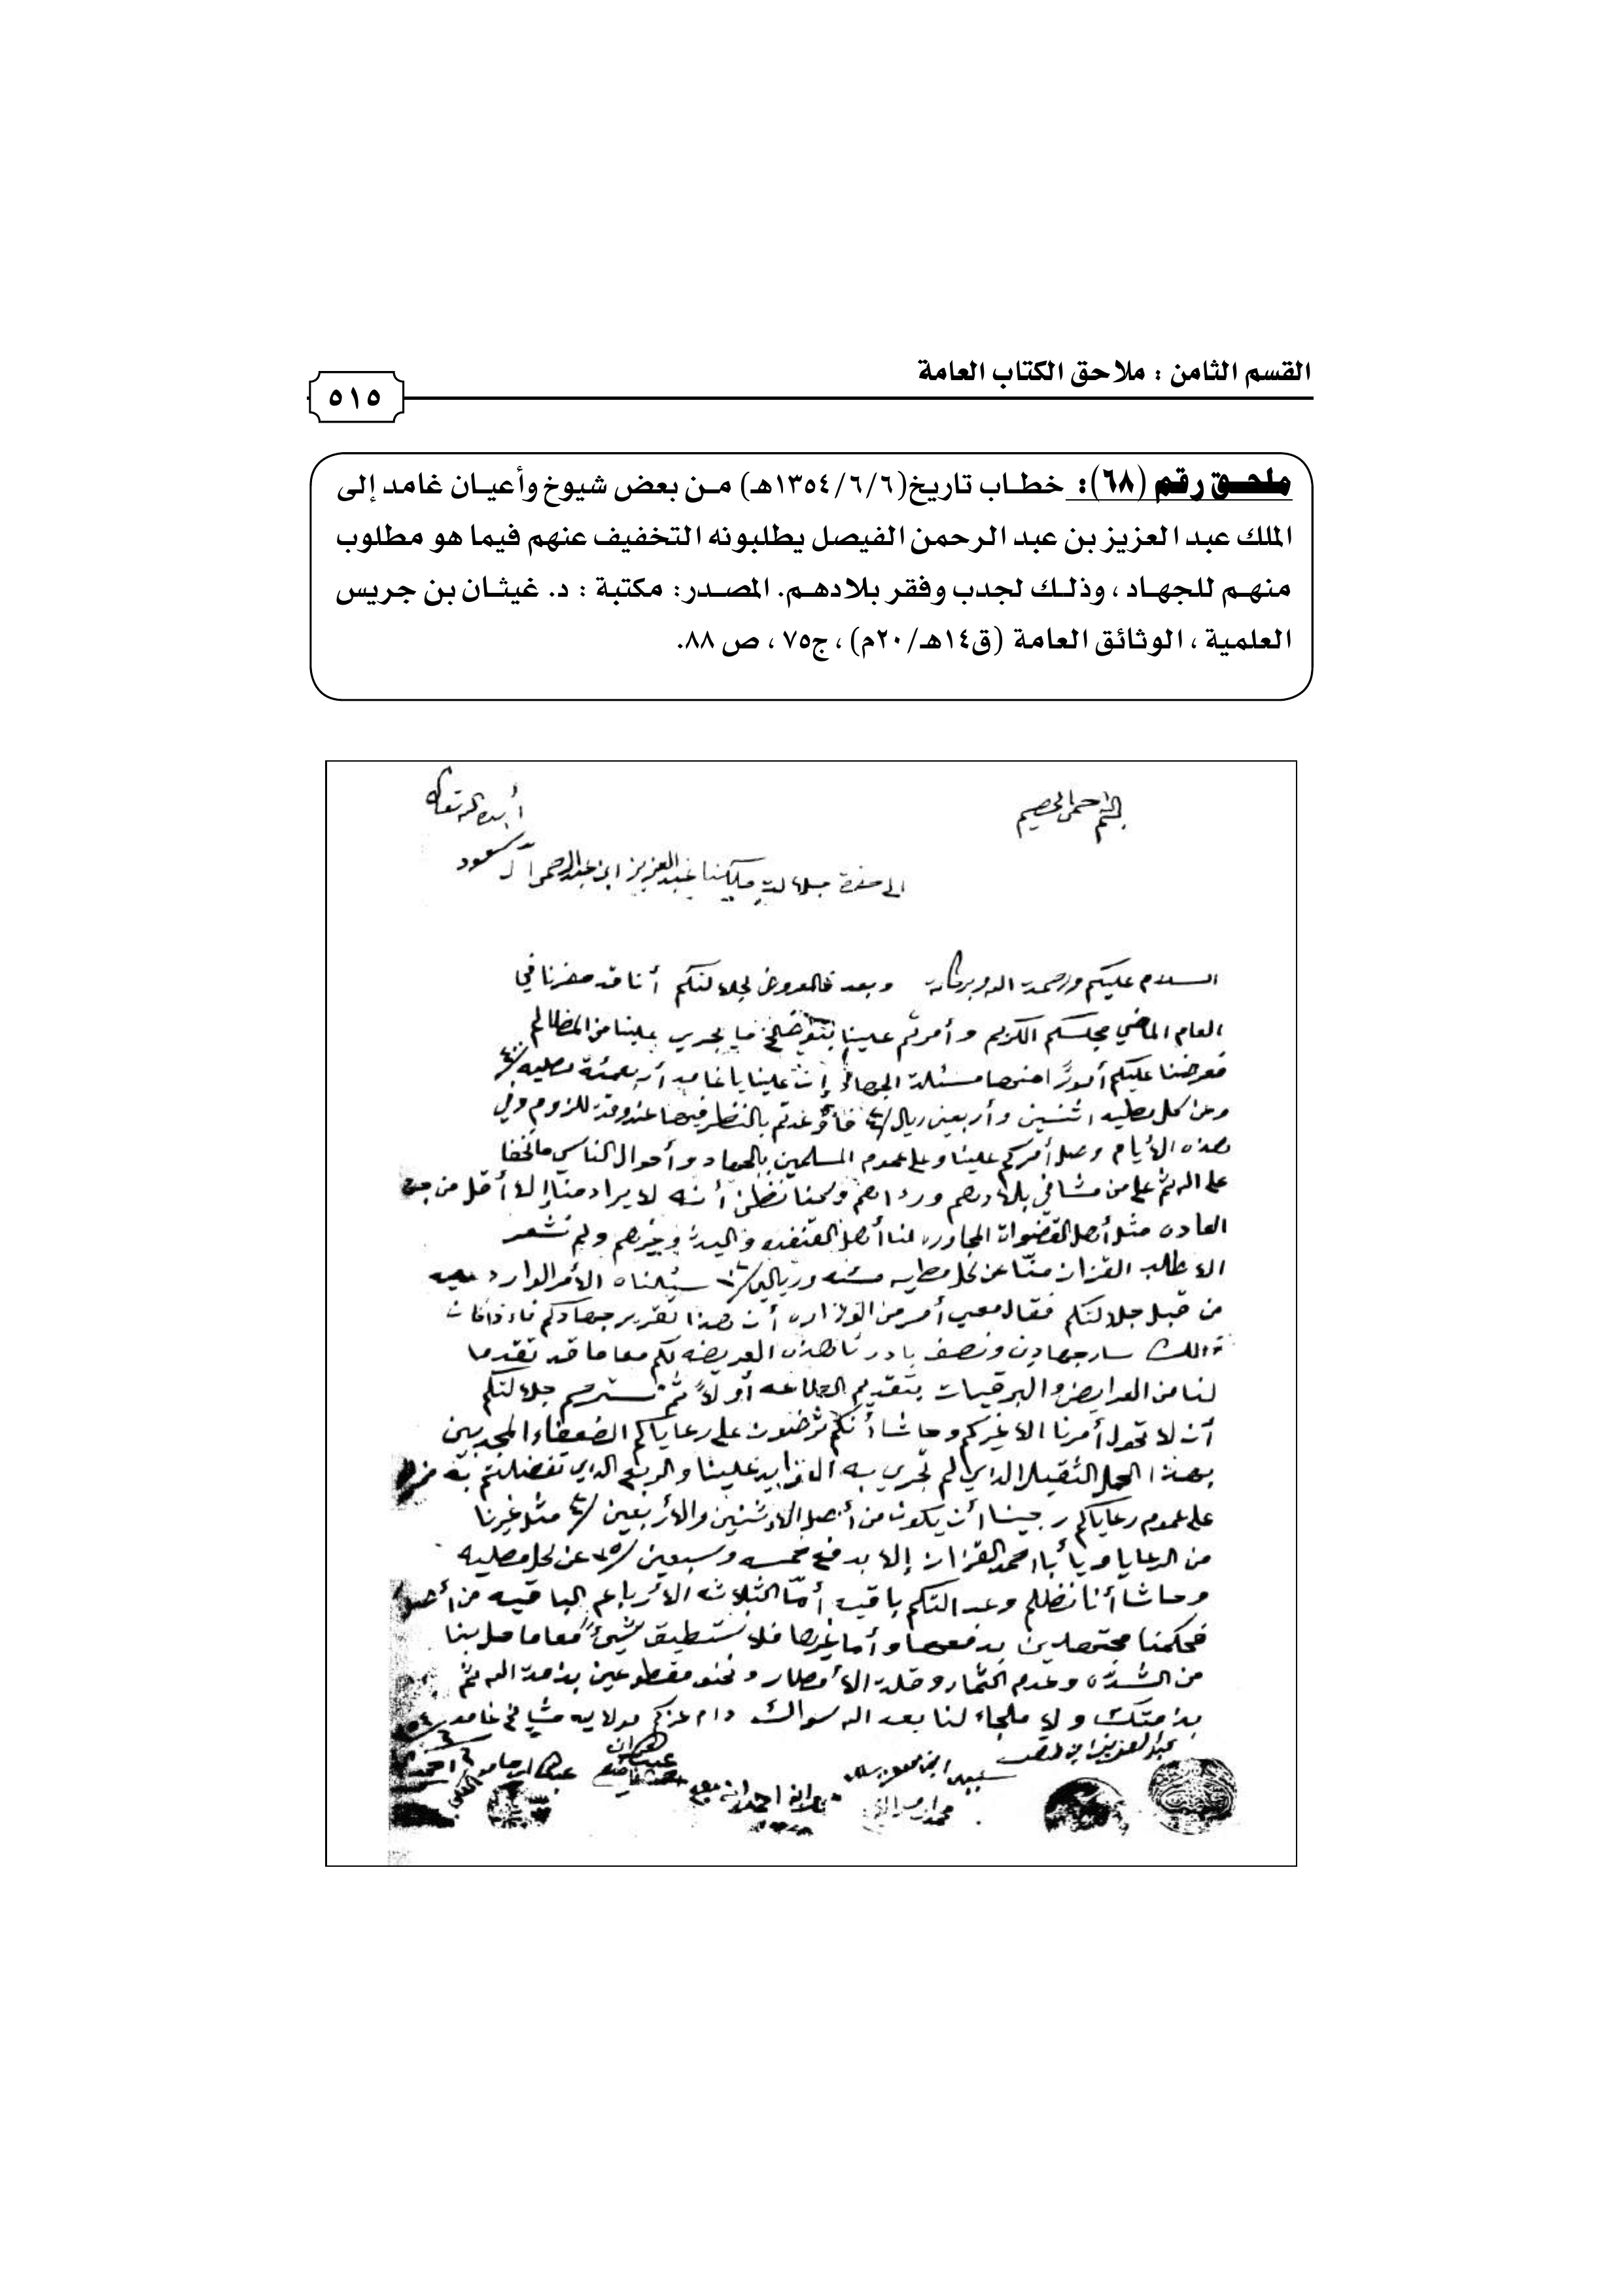 القسم الثامن : ملاحق الكتاب العامة
٥١٥
ملحق رقم (٦٨): خطاب تاريخ(١٣٥٤/٦/٦هـ) من بعض شيوخ وأعيان غامد إلى
الملك عبد العزيز بن عبد الرحمن الفيصل يطلبونه التخفيف عنهم فيما هو مطلوب
منهم للجهاد ، وذلك لجدب وفقر بلادهم. المصدر: مكتبة : د. غيثان بن جريس
العلمية ، الوثائق العامة (ق١٤هـ/٢٠م) ، ج٧٥ ، ص ٨٨.
بسم الله الرحمن الرحيم
أيده الله تعالى
الى حضرة جلالة ملكنا عبد العزيز ابن عبد الرحمن آل سعود
السلام عليكم ورحمة الله وبركاته وبعد فالمعروض لجلالتكم أننا قد حضرنا في
العام الماضي مجلسكم الكريم وأمرتم علينا بتوضيح ما يجري علينا من المظالم
فعرضنا عليكم أمورًا منها مسئلة الجهاد إن علينا يا غامد أربعمئة مطيه /٤٠٠
وعن كل مطيه اثنين وأربعين ريال /٤٢ فأوعدتم بالنظر فيها عند وقت اللزوم وفي
هذه الأيام وصل أمركم علينا وعلى عموم المسلمين بالجهاد وأحوال الناس ما تخفا
على الله ثم على من مشا في بلادهم ونحنا نظن أنه لا يراد منا إلا أقل من
العاده مثل أهل القضوات المجاوره لنا أهل القنفده والليث وغيرهم ولم نشعر
الا طلب القزاز منّا عن كل مطيه مئه وريالين /١٠٢ سئلناه الأمر الوارد عليه
من قبل جلالتكم فقال معي أمر من الوزاره أن هذا تقرير جهادكم
سار جهادين ونصف بادرنا بهذه العريضه لكم معا ما قد تقدم
لنا من العرايض والبرقيات بتقديم الطاعه أولاً ثم نسترحم جلالتكم
أن لا تحول أمرنا الا غيركم وحاشا أنكم ترضون على رعاياكم الضعفاء المجدبين
بهذا الحمل الثقيل الذي لم تجري به العوايد علينا والربع الذي تفضلتم به
على عموم رعاياكم رجينا أن يكون من أهل الاثنين والأربعين /٤٢ مثل غيرنا
من الرعايا ويأبا احمد القزاز إلا بدفع خمسه وسبعين /٧٥ عن كل مطيه
وحاشا أنا نظلم وعدالتكم باقيه أمّا الثلاثه الأرباع الباقيه من أصل
فحكمنا مجتهدين بدفعها وأما غيرها فلا نستطيق شيئ معا ما حل بنا
من الشده وعدم الثمار وقلة الأمطار ونحنو مقطوعين بذمة الله ثم
بذمتك ولا ملجاء لنا بعد الله سواك دام عزكم مشايخ غامد
عبد العزيز ابن